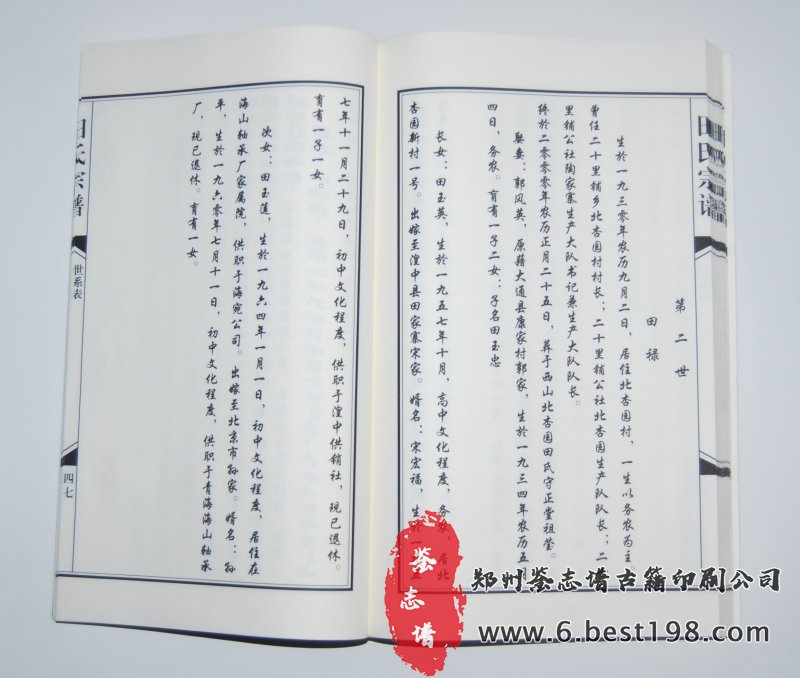 田氏宗谱
第二世
田禄
生於一九三〇年农历九月二日，居住北杏园村，一生以务农为主。
曾任二十里铺乡北杏园村村长；二十里铺公社北杏园生产队队长；二
十里铺公社陶家寨生产大队书记兼生产大队队长。
终於二〇〇〇年农历正月二十五日，葬于西山北杏园田氏守正堂祖莹。
娶妻：郭风英，原籍大通县康家村郭家，生於一九三四年农历五月
四日，务农。育有一子二女：子名田玉忠
长女：田玉英，生於一九五七年十月，高中文化程度，务农，居北
杏园新村一号。出嫁至湟中县田家寨宋家。婿名：宋宏福，生於一九五
七年十一月二十九日，初中文化程度，供职于湟中供销社，现已退休。
育有一子一女。
次女：田玉莲，生於一九六四年一月一日，初中文化程度，居住在
海山轴承厂家属院，供职于海宛公司。出嫁至北京市孙家。婿名：孙
年，生於一九六〇年七月十一日，初中文化程度，供职于青海海山轴承
厂，现已退休。育有一女。
田氏宗谱
世系表
四七
鉴志谱
郑州鉴志谱古籍印刷公司
www.6.best198.com